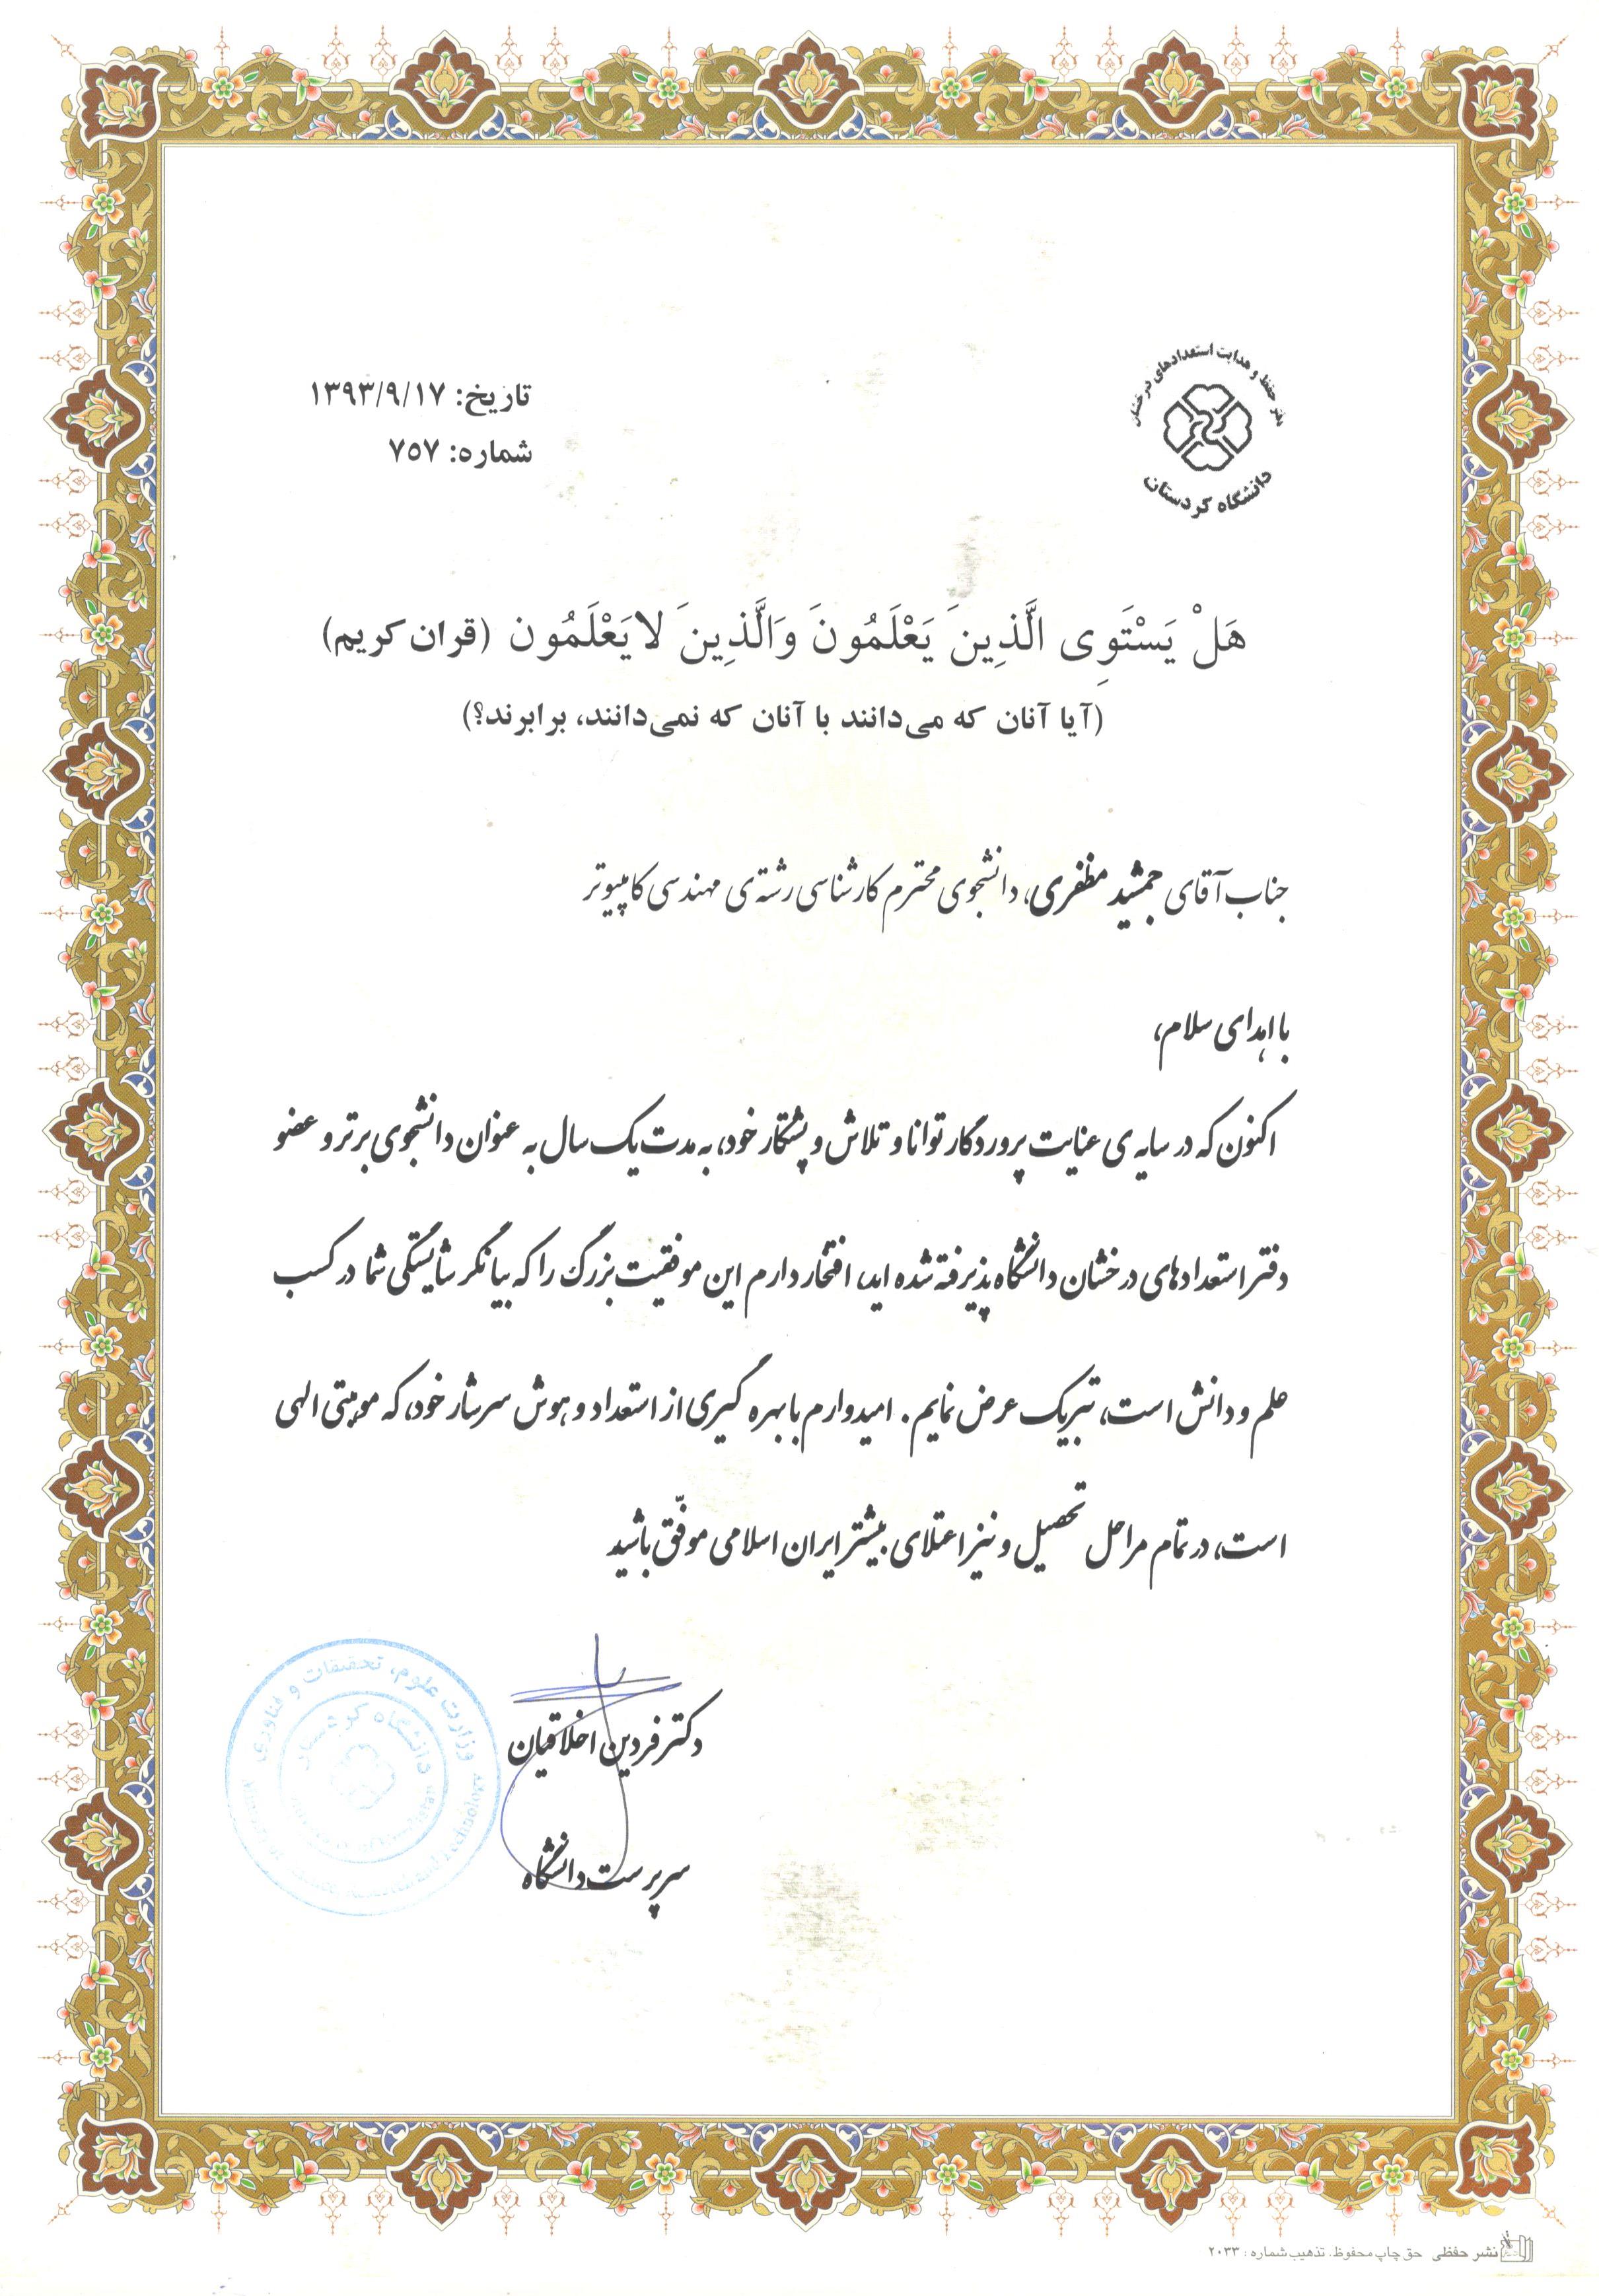 دفتر حفظ و هدایت استعدادهای درخشان
دانشگاه کردستان
تاریخ: ۱۳۹۳/۹/۱۷
شماره: ۷۵۷
هَلْ یَسْتَوِی الَّذِینَ یَعْلَمُونَ وَالَّذِینَ لایَعْلَمُون (قران کریم)
(آیا آنان که می‌دانند با آنان که نمی‌دانند، برابرند؟)
جناب آقای جمشید مظفری، دانشجوی محترم کارشناسی رشته‌ی مهندسی کامپیوتر
با اهدای سلام،
اکنون که در سایه‌ی عنایت پروردگار توانا و تلاش و پشتکار خود، به مدت یک سال به عنوان دانشجوی برتر و عضو
دفتر استعدادهای درخشان دانشگاه پذیرفته شده اید، افتخار دارم این موفقیت بزرگ را که بیانگر شایستگی شما در کسب
علم و دانش است، تبریک عرض نمایم. امیدوارم با بهره گیری از استعداد و هوش سرشار خود، که موهبتی الهی
است، در تمام مراحل تحصیل و نیز اعتلای بیشتر ایران اسلامی موفّق باشید
دکتر فردین اخلاقیان
سرپرست دانشگاه
وزارت علوم، تحقیقات و فناوری
دانشگاه کردستان
نشر حفظی حق چاپ محفوظ. تذهیب شماره: ۲۰۳۳